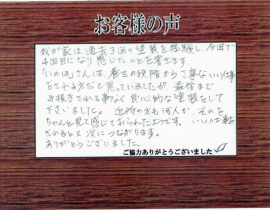 お客様の声
我が家は過去3回の塗装を経験し、今回で
4回目になり感じたことを書きます。
「いのほ」さんは、養生の段階から丁寧ないい仕事
をされる方だと見ていましたが、最後まで
手抜きされる事なく良心的な塗装をして
下さいました。近所の方も何人か、それを
ちゃんと見て感じておられたようです。いい仕事
されると次につながります。
ありがとうございました。
ご協力ありがとうございました